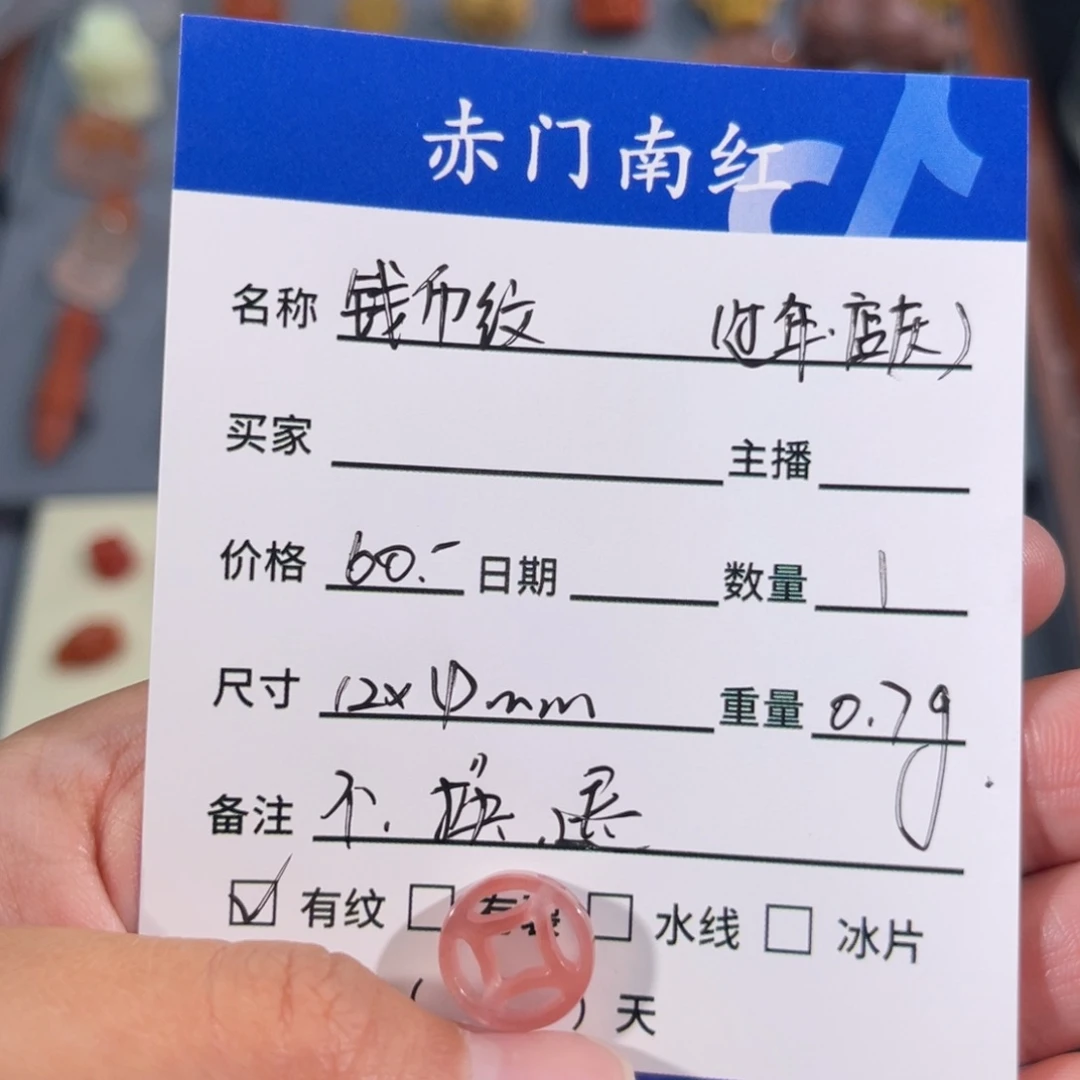 赤门南红
名称 钱币纹 (过年.店庆)
买家 主播
价格 60.- 日期 数量 1
尺寸 12x mm 重量 0.7g
备注 不.换.退
☑ 有纹 ☐ 有 ☐ 水线 ☐ 冰片
( ) 天